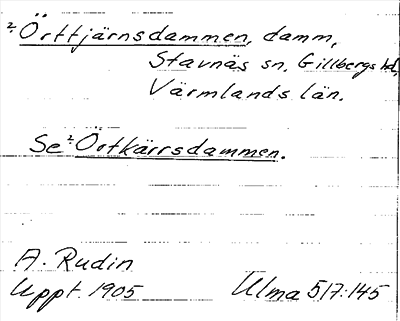 2. Örttjärnsdammen, damm,
Stavnäs sn. Gillbergs hd,
Värmlands län.
Se 2. Örtkärrsdammen.
A. Rudin
Uppt. 1905 Ulma 517:145